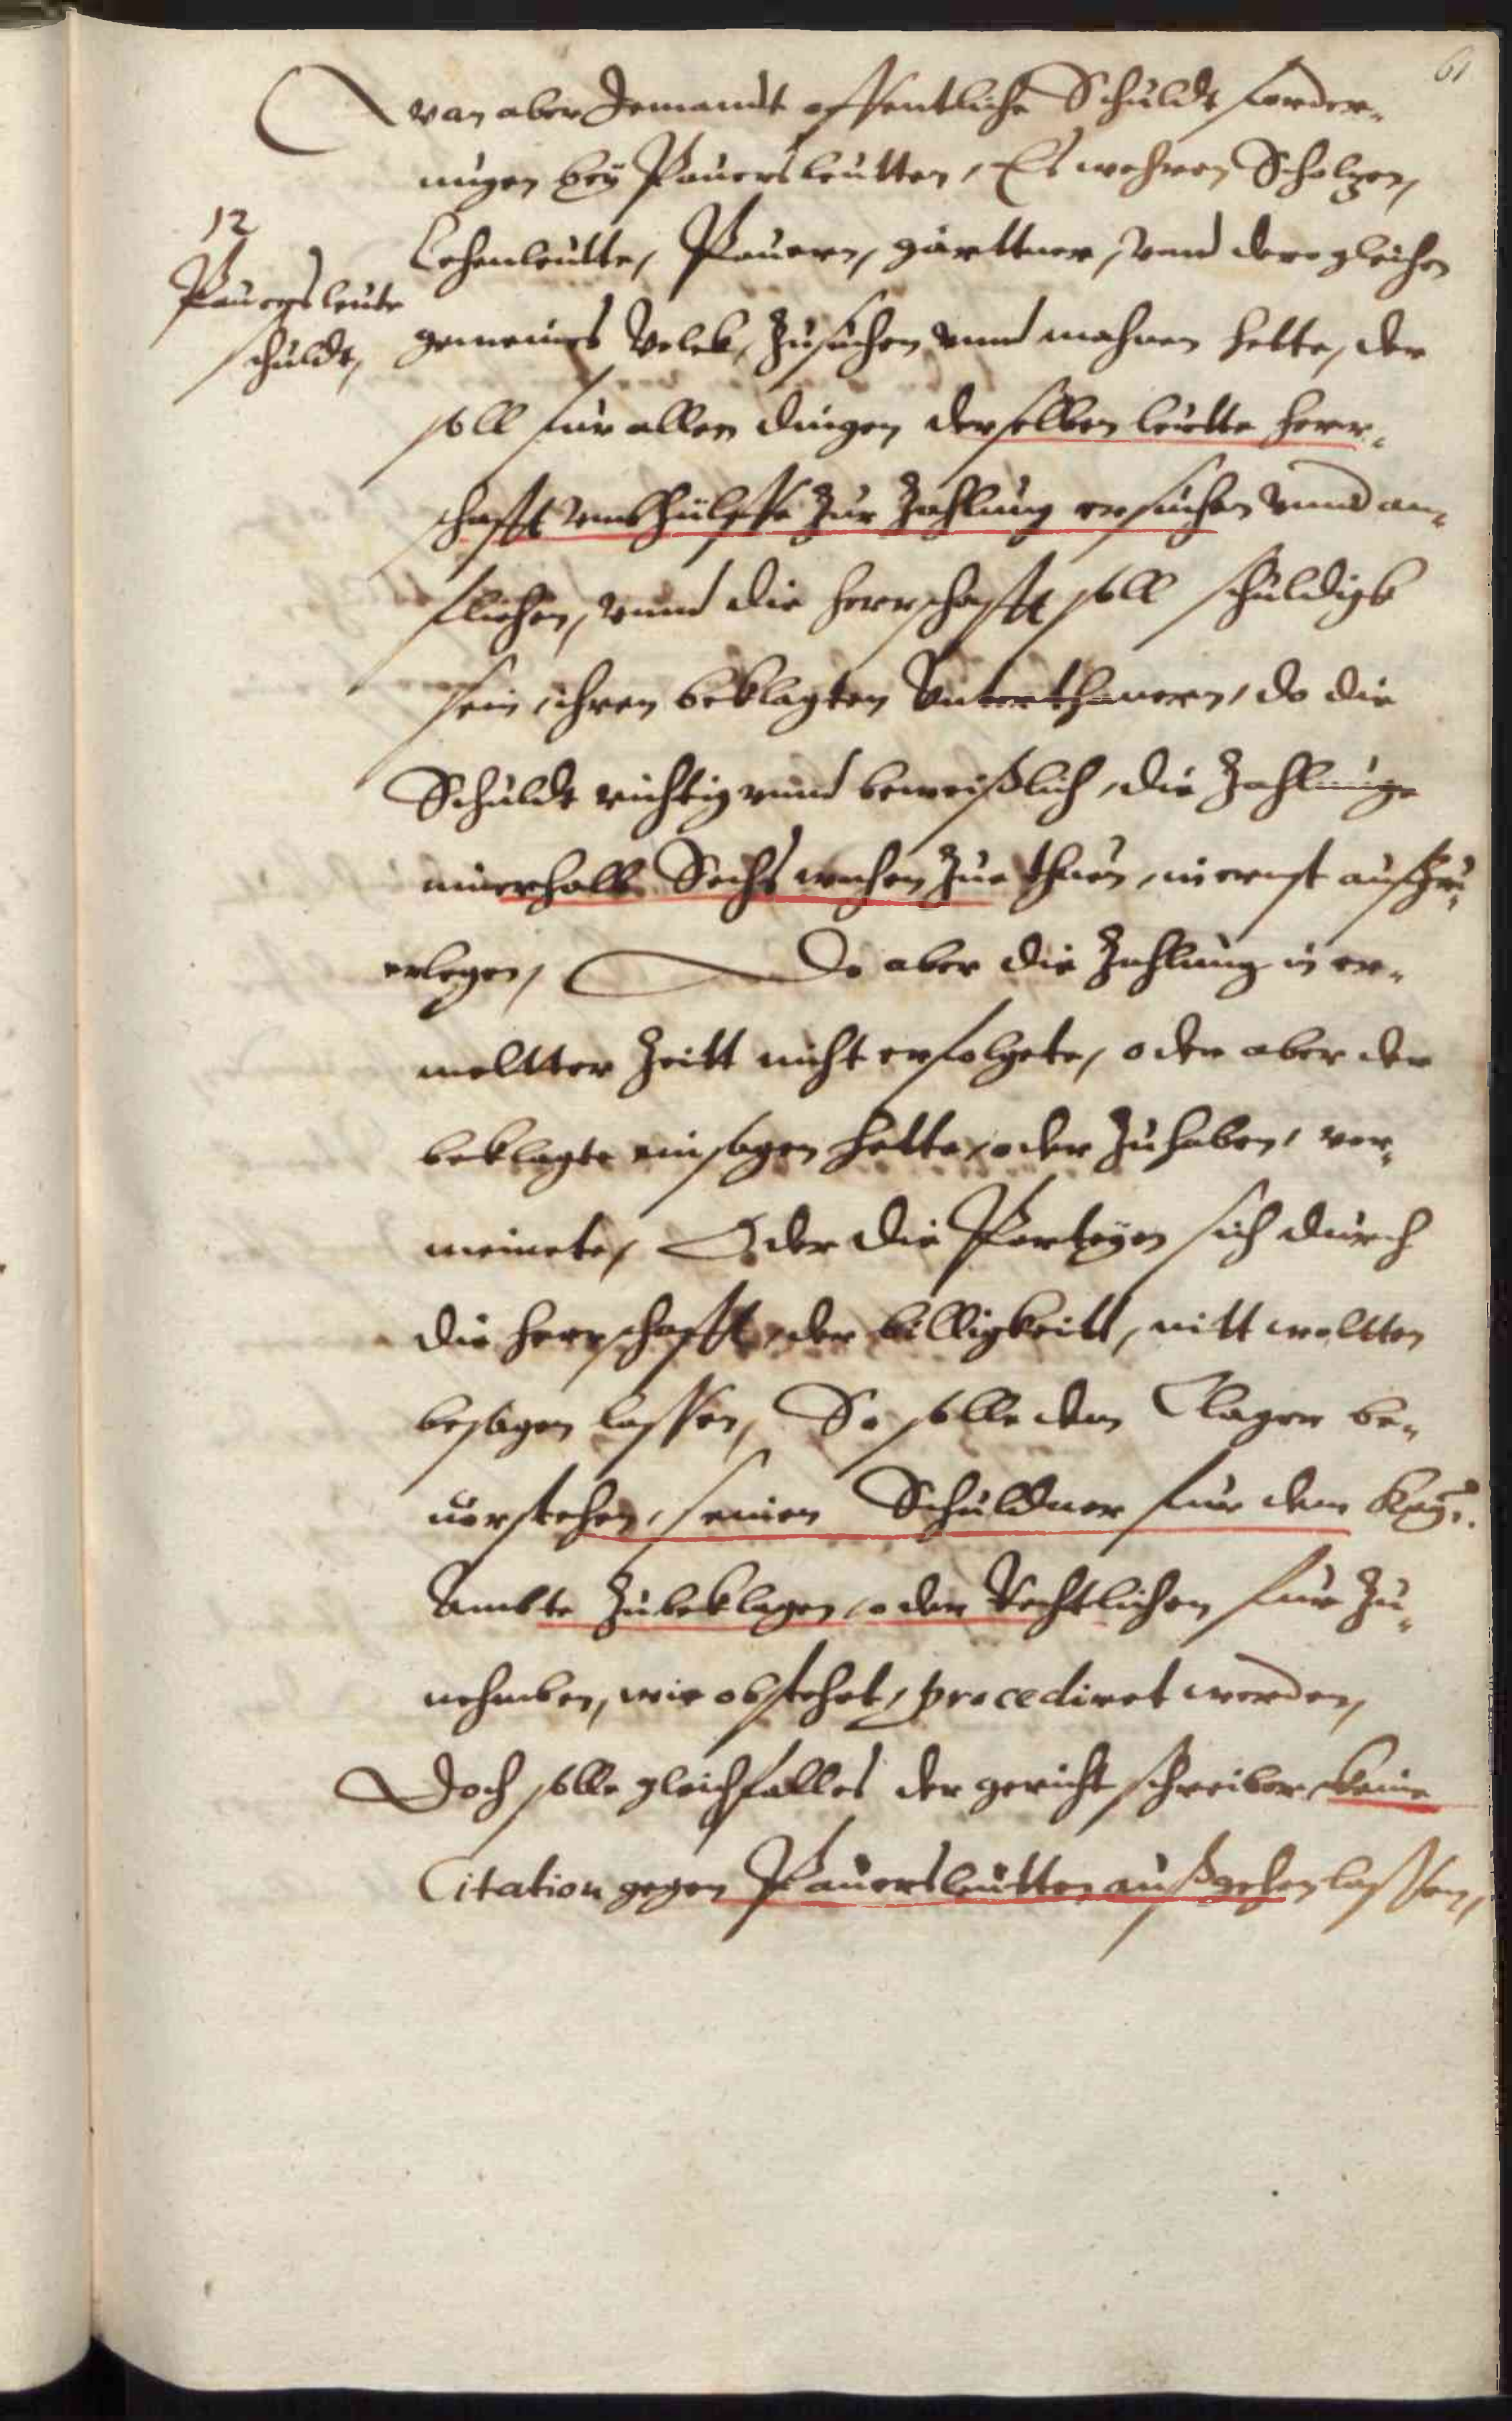 61
Wan aber Jemandt offentliche Schuldt forder-
ungen beÿ Pauersleutten, Es wehren Scholzen,
12
Pauersleute
schuldt,
Lehenleutte, Pauern, gärttner, vnd dergleichen
gemeines Volck, zusuchen vnnd mahnen hette, der
soll fur allen dingen derselben leutte herr-
schafft vmb hülffe zur Zahlung ersuchen vnnd an-
fliehen, vnnd die herrschafft soll schuldigk
sein, ihren beklagten Vnterthanern, do die
Schuldt richtig vnnd beweißlich, die Zahlunge
innerhalb Sechs wochen zue thuen, in ernst aufzu-
erlegen, Do aber die Zahlung in er-
meltter Zeitt nicht erfolgete, oder aber der
beklagte einsagen hette, oder zuhaben, ver-
meinete, Oder die Parteyen sich durch
die herrschafft, der billigkeitt, nitt woltten
besagen lassen, So solle dem Clager be-
uorstehen, seinen Schuldner fur dem Kaÿ:
Ambte zubeklagen, oder Rechtlichen fur zu-
nehmben, wie obstehet, procediret werden,
Doch solle gleichfalles der gericht schreiber, keine
Citation gegen Pauersleutten außgehen lassen,